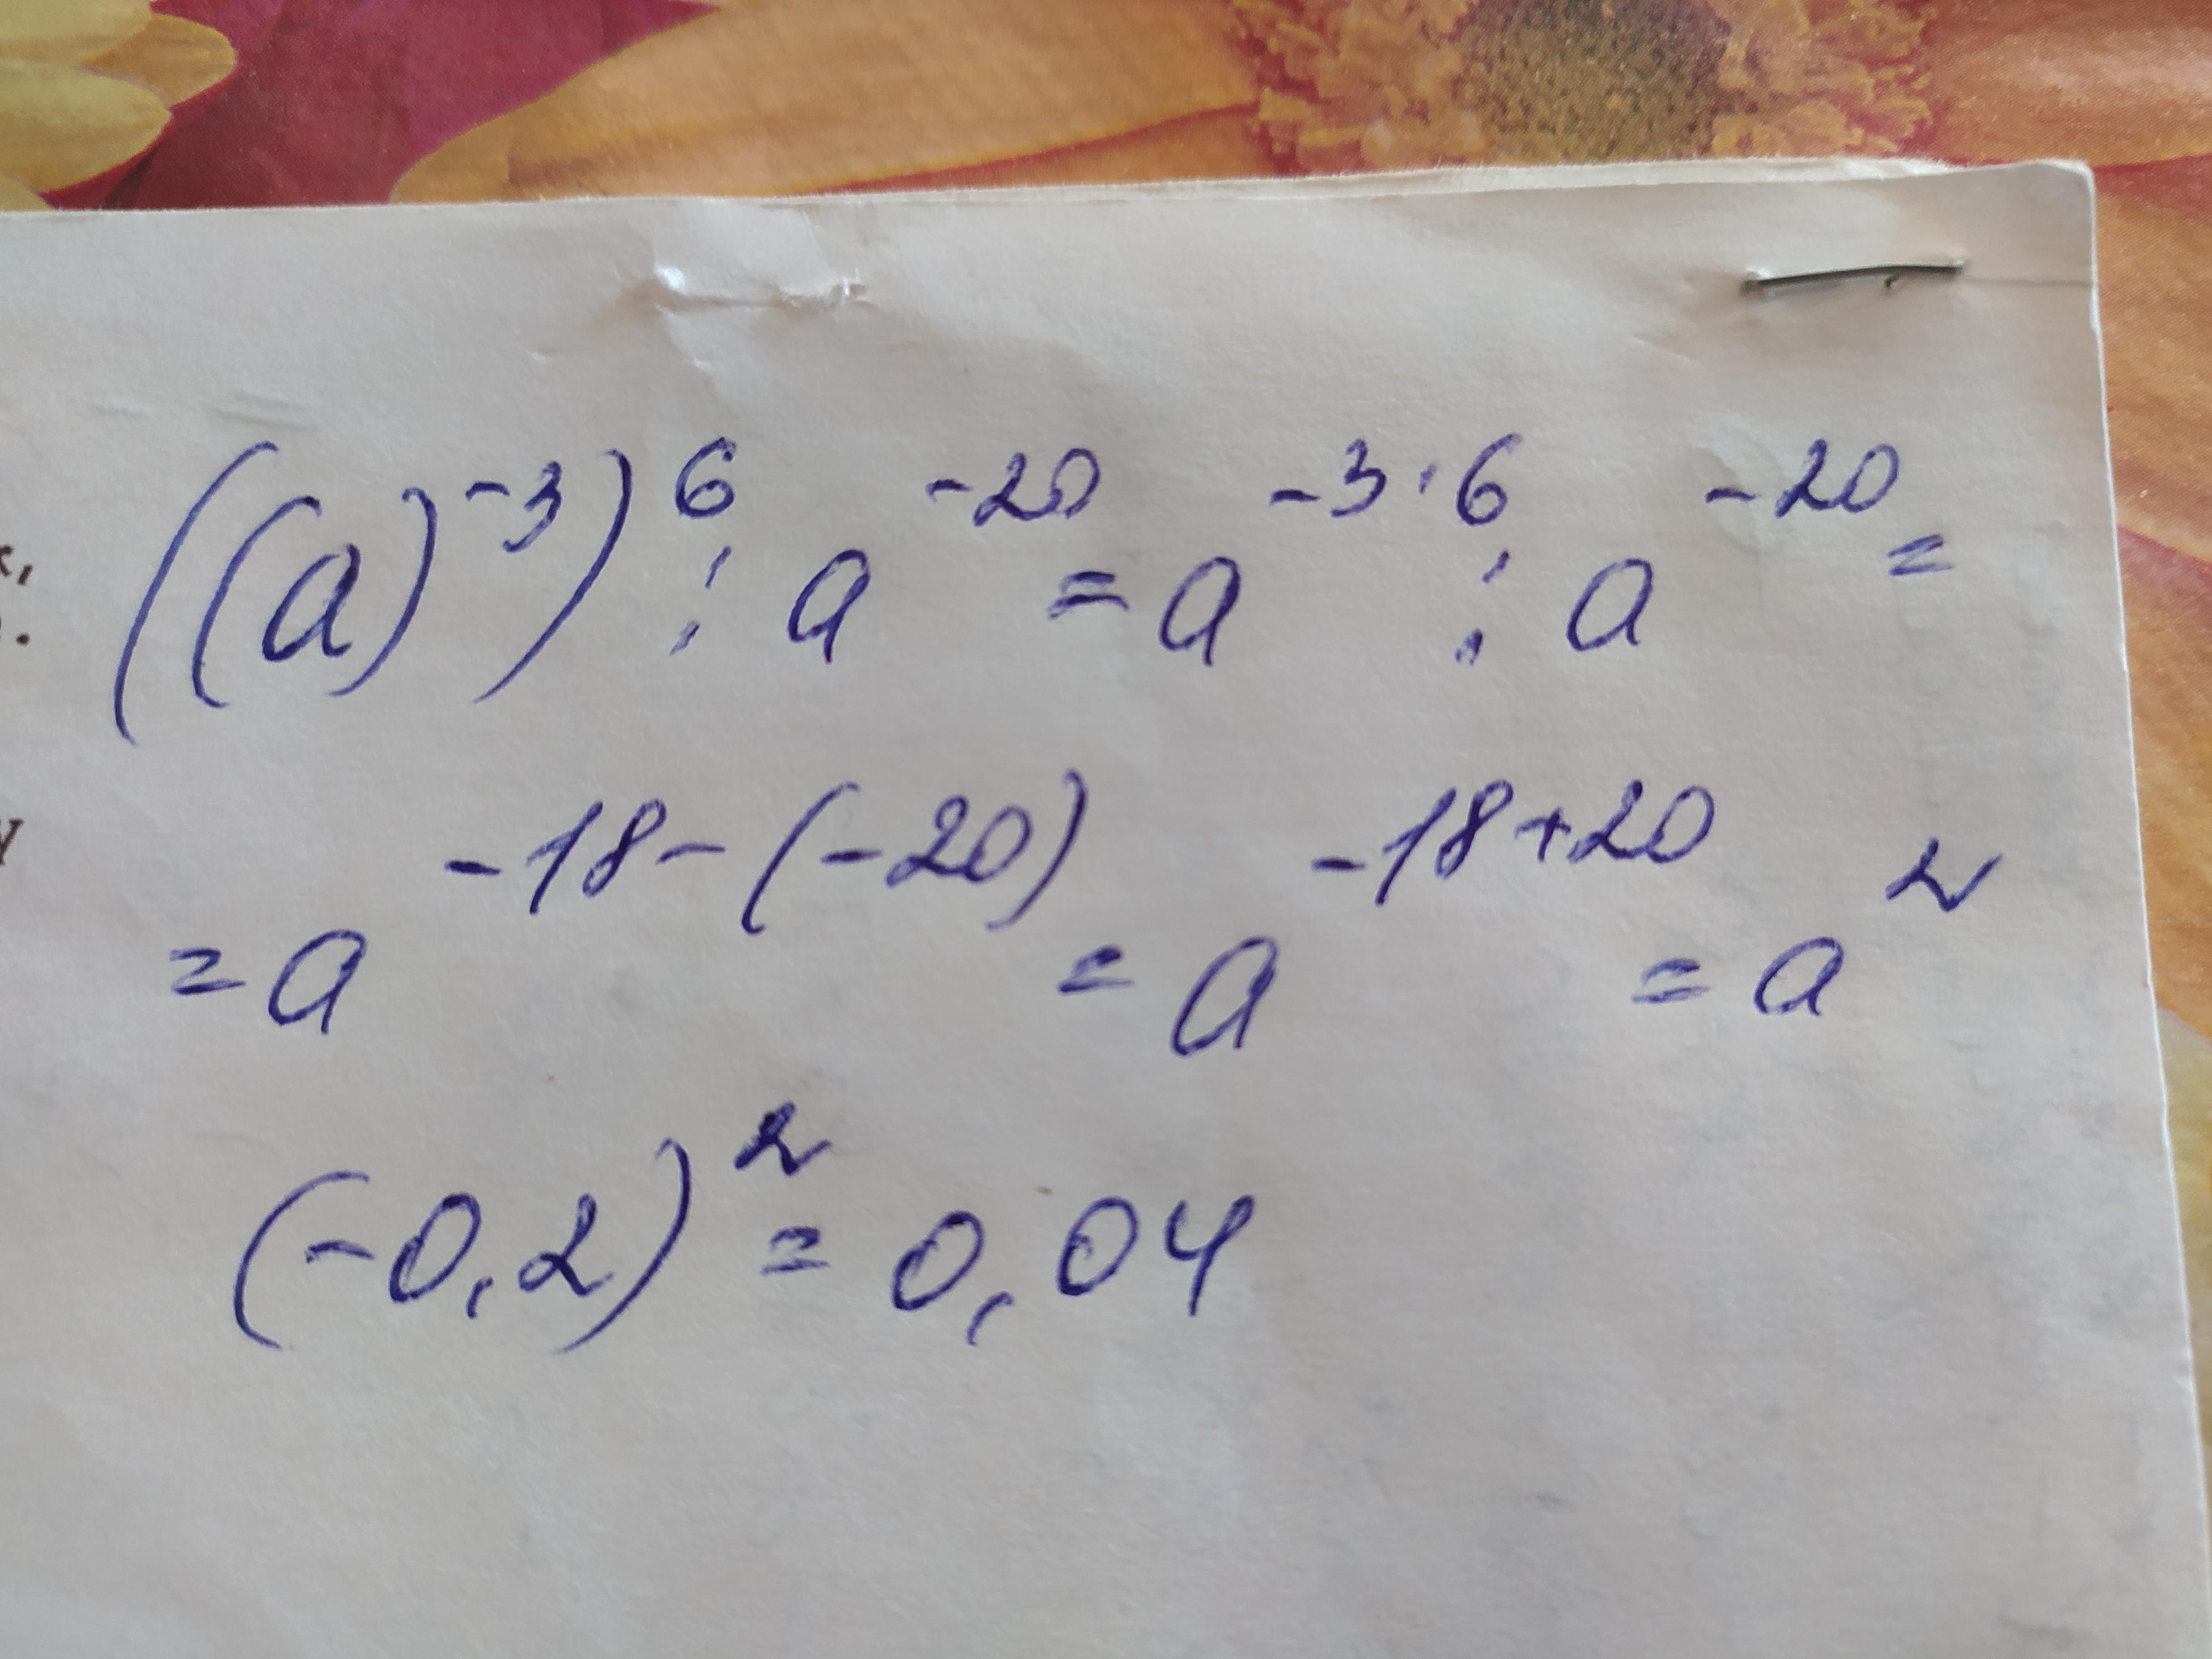 ((a)^-3)^6 : a^-20 = a^-3·6 : a^-20 =
= a^-18-(-20) = a^-18+20 = a^2
(-0,2)^2 = 0,04